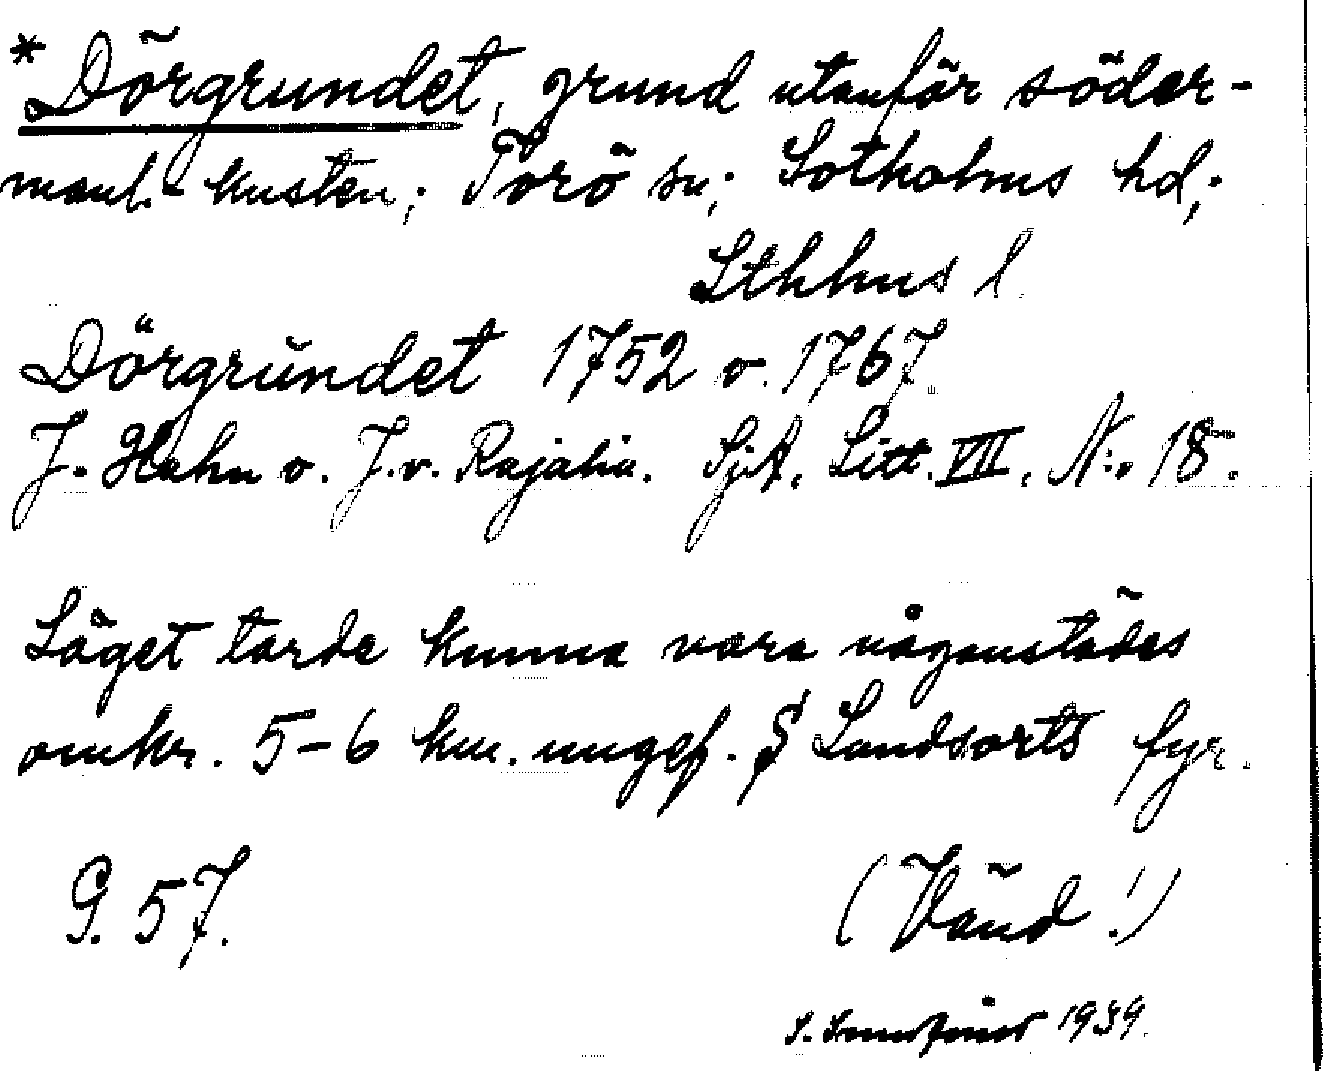 * Dörgrundet, grund utanför söder-
manl. kusten; Torö sn; Sotholms hd;
Sthlms l.
Dörgrundet 1752 o. 1767.
J. Hahn o. J. v. Rajalin. SjA. Litt. VII. N:o 18.
Läget torde kunna vara någonstädes
omkr. 5-6 km. ungef. S Landsorts fyr.
G. 57. (Vänd!)
S. 1939.